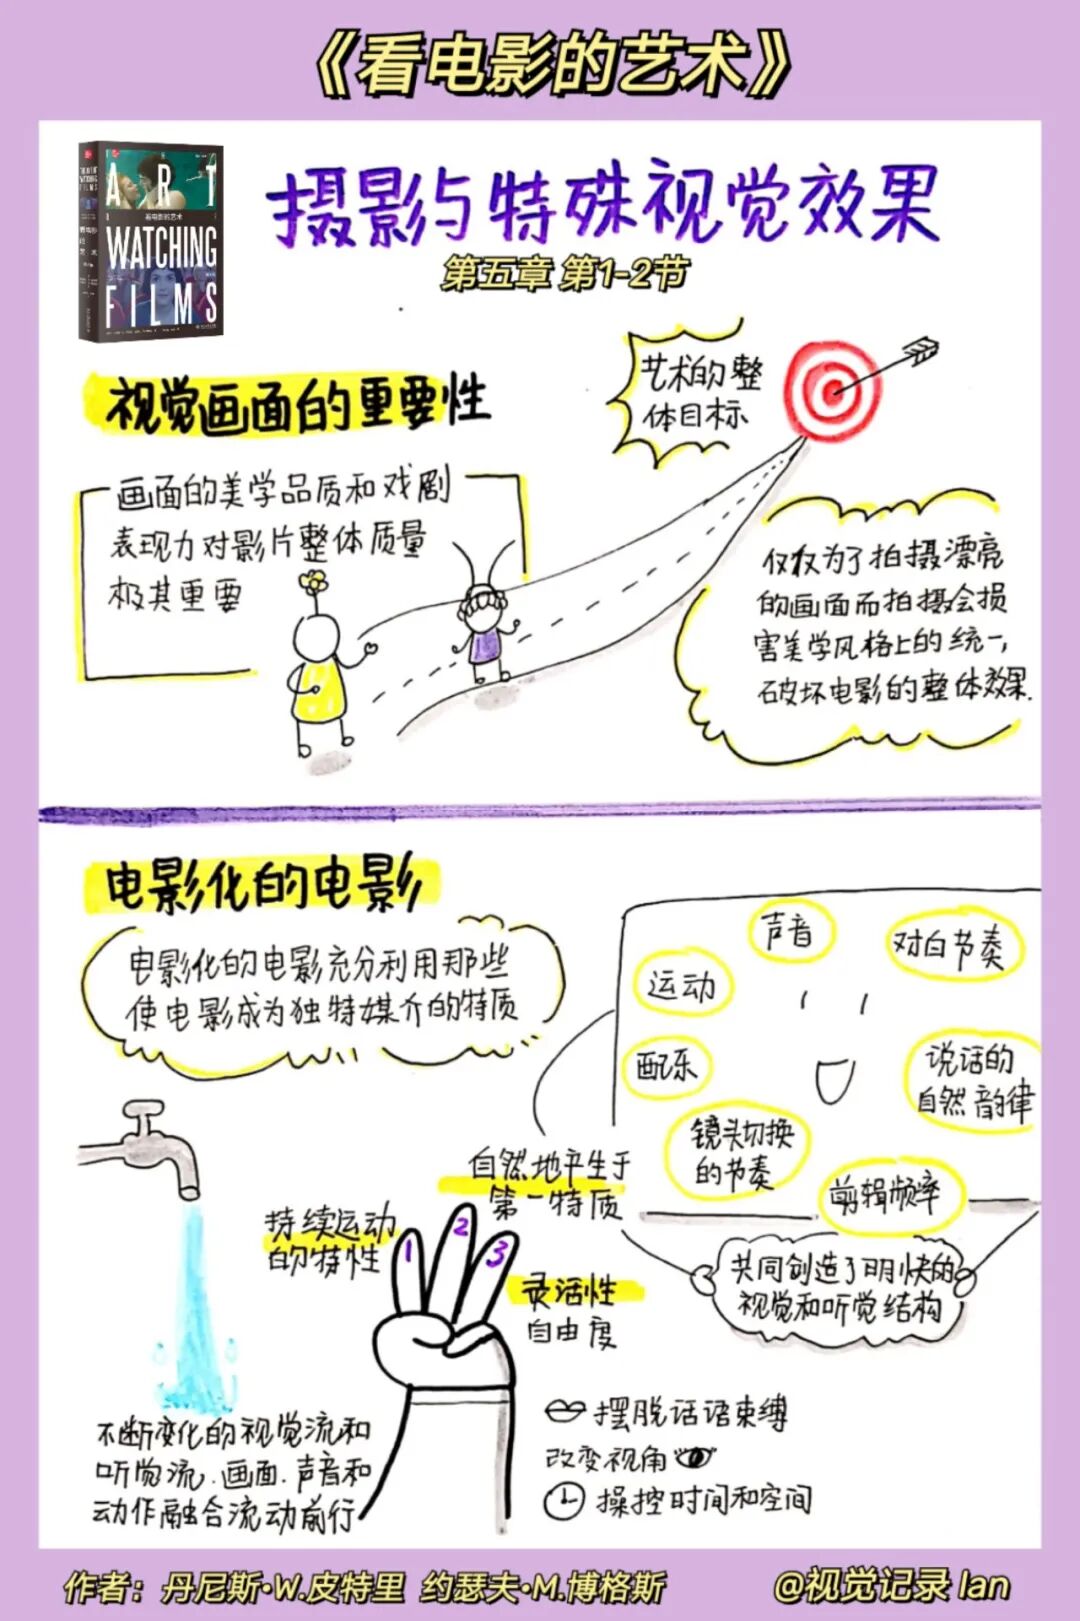 《看电影的艺术》
ART
看电影的艺术
WATCHING
FILMS
摄影与特殊视觉效果
第五章 第1-2节
视觉画面的重要性
画面的美学品质和戏剧
表现力对影片整体质量
极其重要
艺术的整
体目标
仅仅为了拍摄漂亮
的画面而拍摄会损
害美学风格上的统一,
破坏电影的整体效果.
电影化的电影
电影化的电影充分利用那些
使电影成为独特媒介的特质
声音
对白节奏
运动
配乐
说话的
自然韵律
镜头切换
的节奏
剪辑频率
共同创造了明快的
视觉和听觉结构
持续运动
的特性
自然地产生于
第一特质
灵活性
自由度
1
2
3
不断变化的视觉流和
听觉流.画面.声音和
动作融合流动前行
摆脱话语束缚
改变视角
操控时间和空间
作者：丹尼斯·W.皮特里 约瑟夫·M.博格斯
@视觉记录 Ian